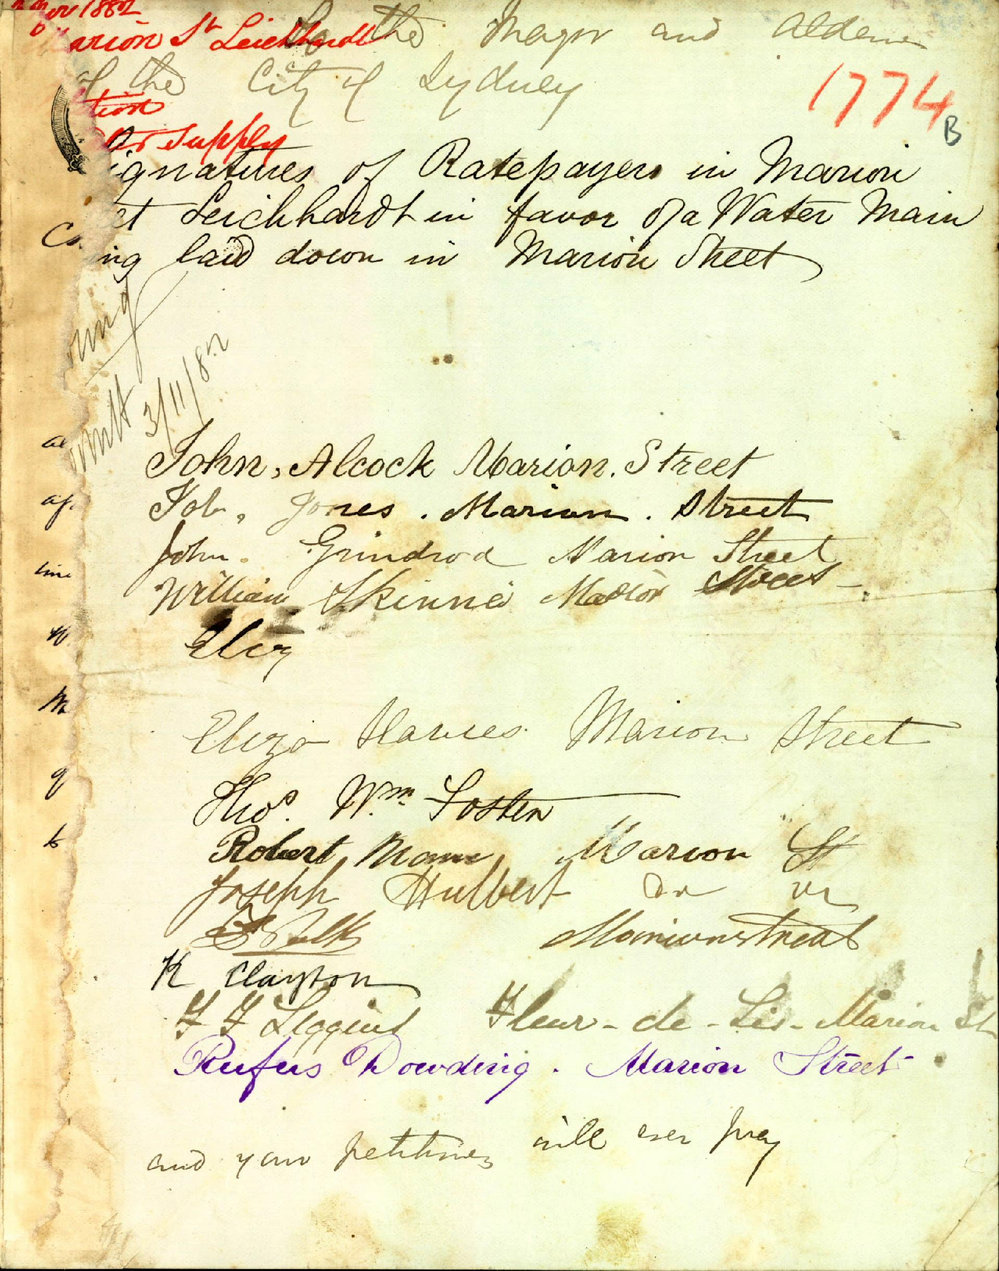 Nov 1882
Marion St Leichhardt
To the Mayor and Aldermen
of the City of Sydney
1774
B
tion
Water Supply
ignatures of Ratepayers in Marion
et Leichhardt in favor of a Water Main
ing laid down in Marion Street
3/11/82
John, Alcock Marion. Street
Job, Jones. Marion. Street
John. Grindrod Marion Street
William Skinner Street
Eliz
Eliza Marion Street
Thos. Wm. Foster
Robert Marion St
Joseph Hulbert Do Do
Marionstreat
K Clayton
F F Liggins Fleur-de-Lis-Marion St
Rufus Dowding. Marion Street
and your petitioners will ever pray